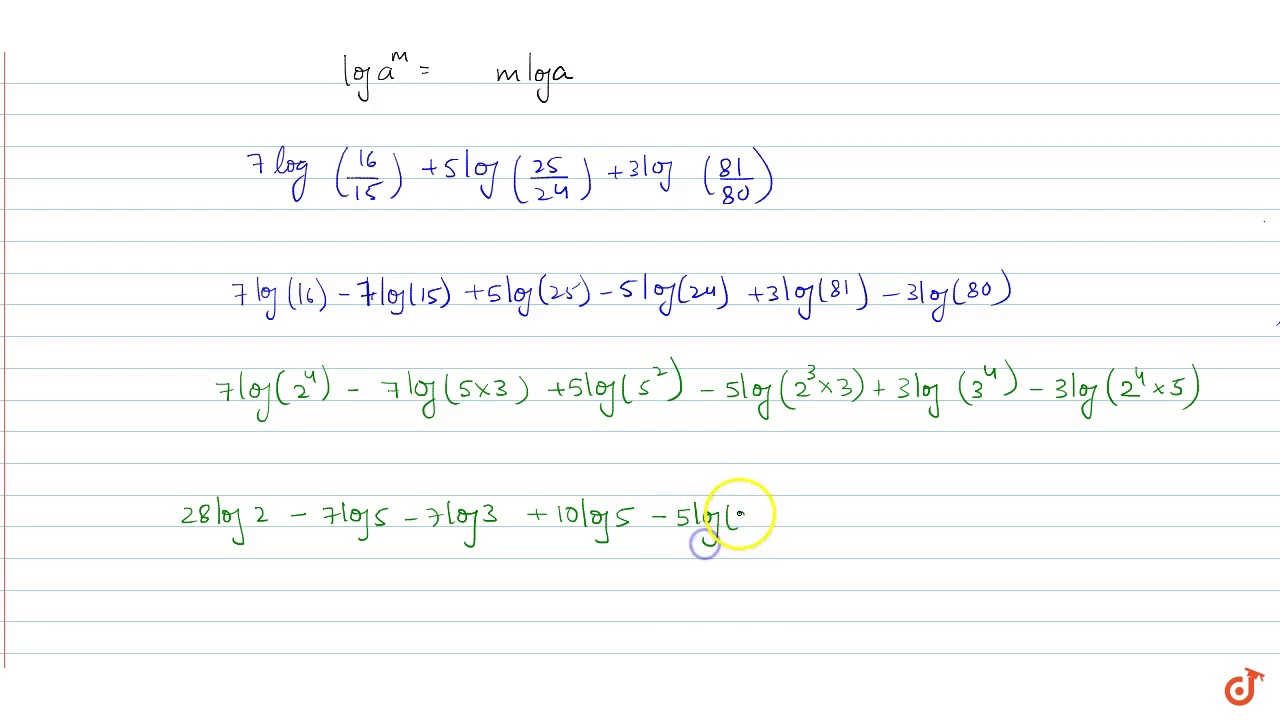 log a^m = m log a
7 log (16/15) + 5 log (25/24) + 3 log (81/80)
7 log (16) - 7 log (15) + 5 log (25) - 5 log (24) + 3 log (81) - 3 log (80)
7 log (2^4) - 7 log (5×3) + 5 log (5^2) - 5 log (2^3 × 3) + 3 log (3^4) - 3 log (2^4 × 5)
28 log 2 - 7 log 5 - 7 log 3 + 10 log 5 - 5 log (